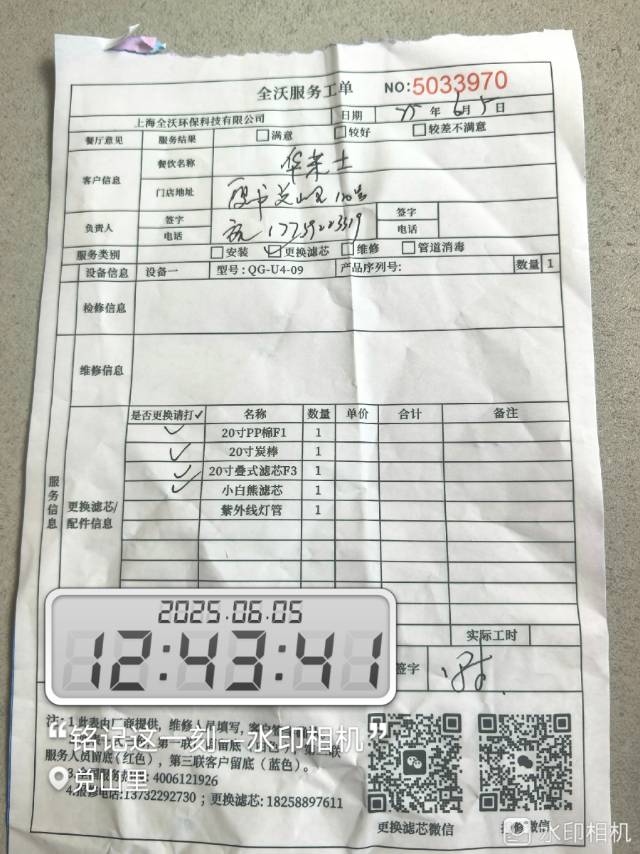 全沃服务工单 NO:5033970
上海全沃环保科技有限公司 日期 25年6月5日
餐厅意见 服务结果 满意 较好 较差不满意
客户信息 餐饮名称 华莱士
门店地址 兑山里
负责人 签字 签字
电话 17759203319 电话
服务类别 安装 ✓更换滤芯 维修 管道消毒
设备信息 设备一 型号:QG-U4-09 产品序列号: 数量 1
检修信息
维修信息
服务信息
更换滤芯/配件信息
是否更换请打✓ 名称 数量 单价 合计 备注
✓ 20寸PP棉F1 1
✓ 20寸炭棒 1
✓ 20寸叠式滤芯F3 1
✓ 小白熊滤芯 1
紫外线灯管 1
实际工时
签字
2025.06.05
12:43:41
注:1.此表由厂商提供,维修人员填写,
第一联
服务人员留底(红色),第三联客户留底(蓝色)。
4006121926
4.报修电话:13732292730;更换滤芯:18258897611
更换滤芯微信 维修微信
“铭记这一刻,水印相机”
兑山里
水印相机